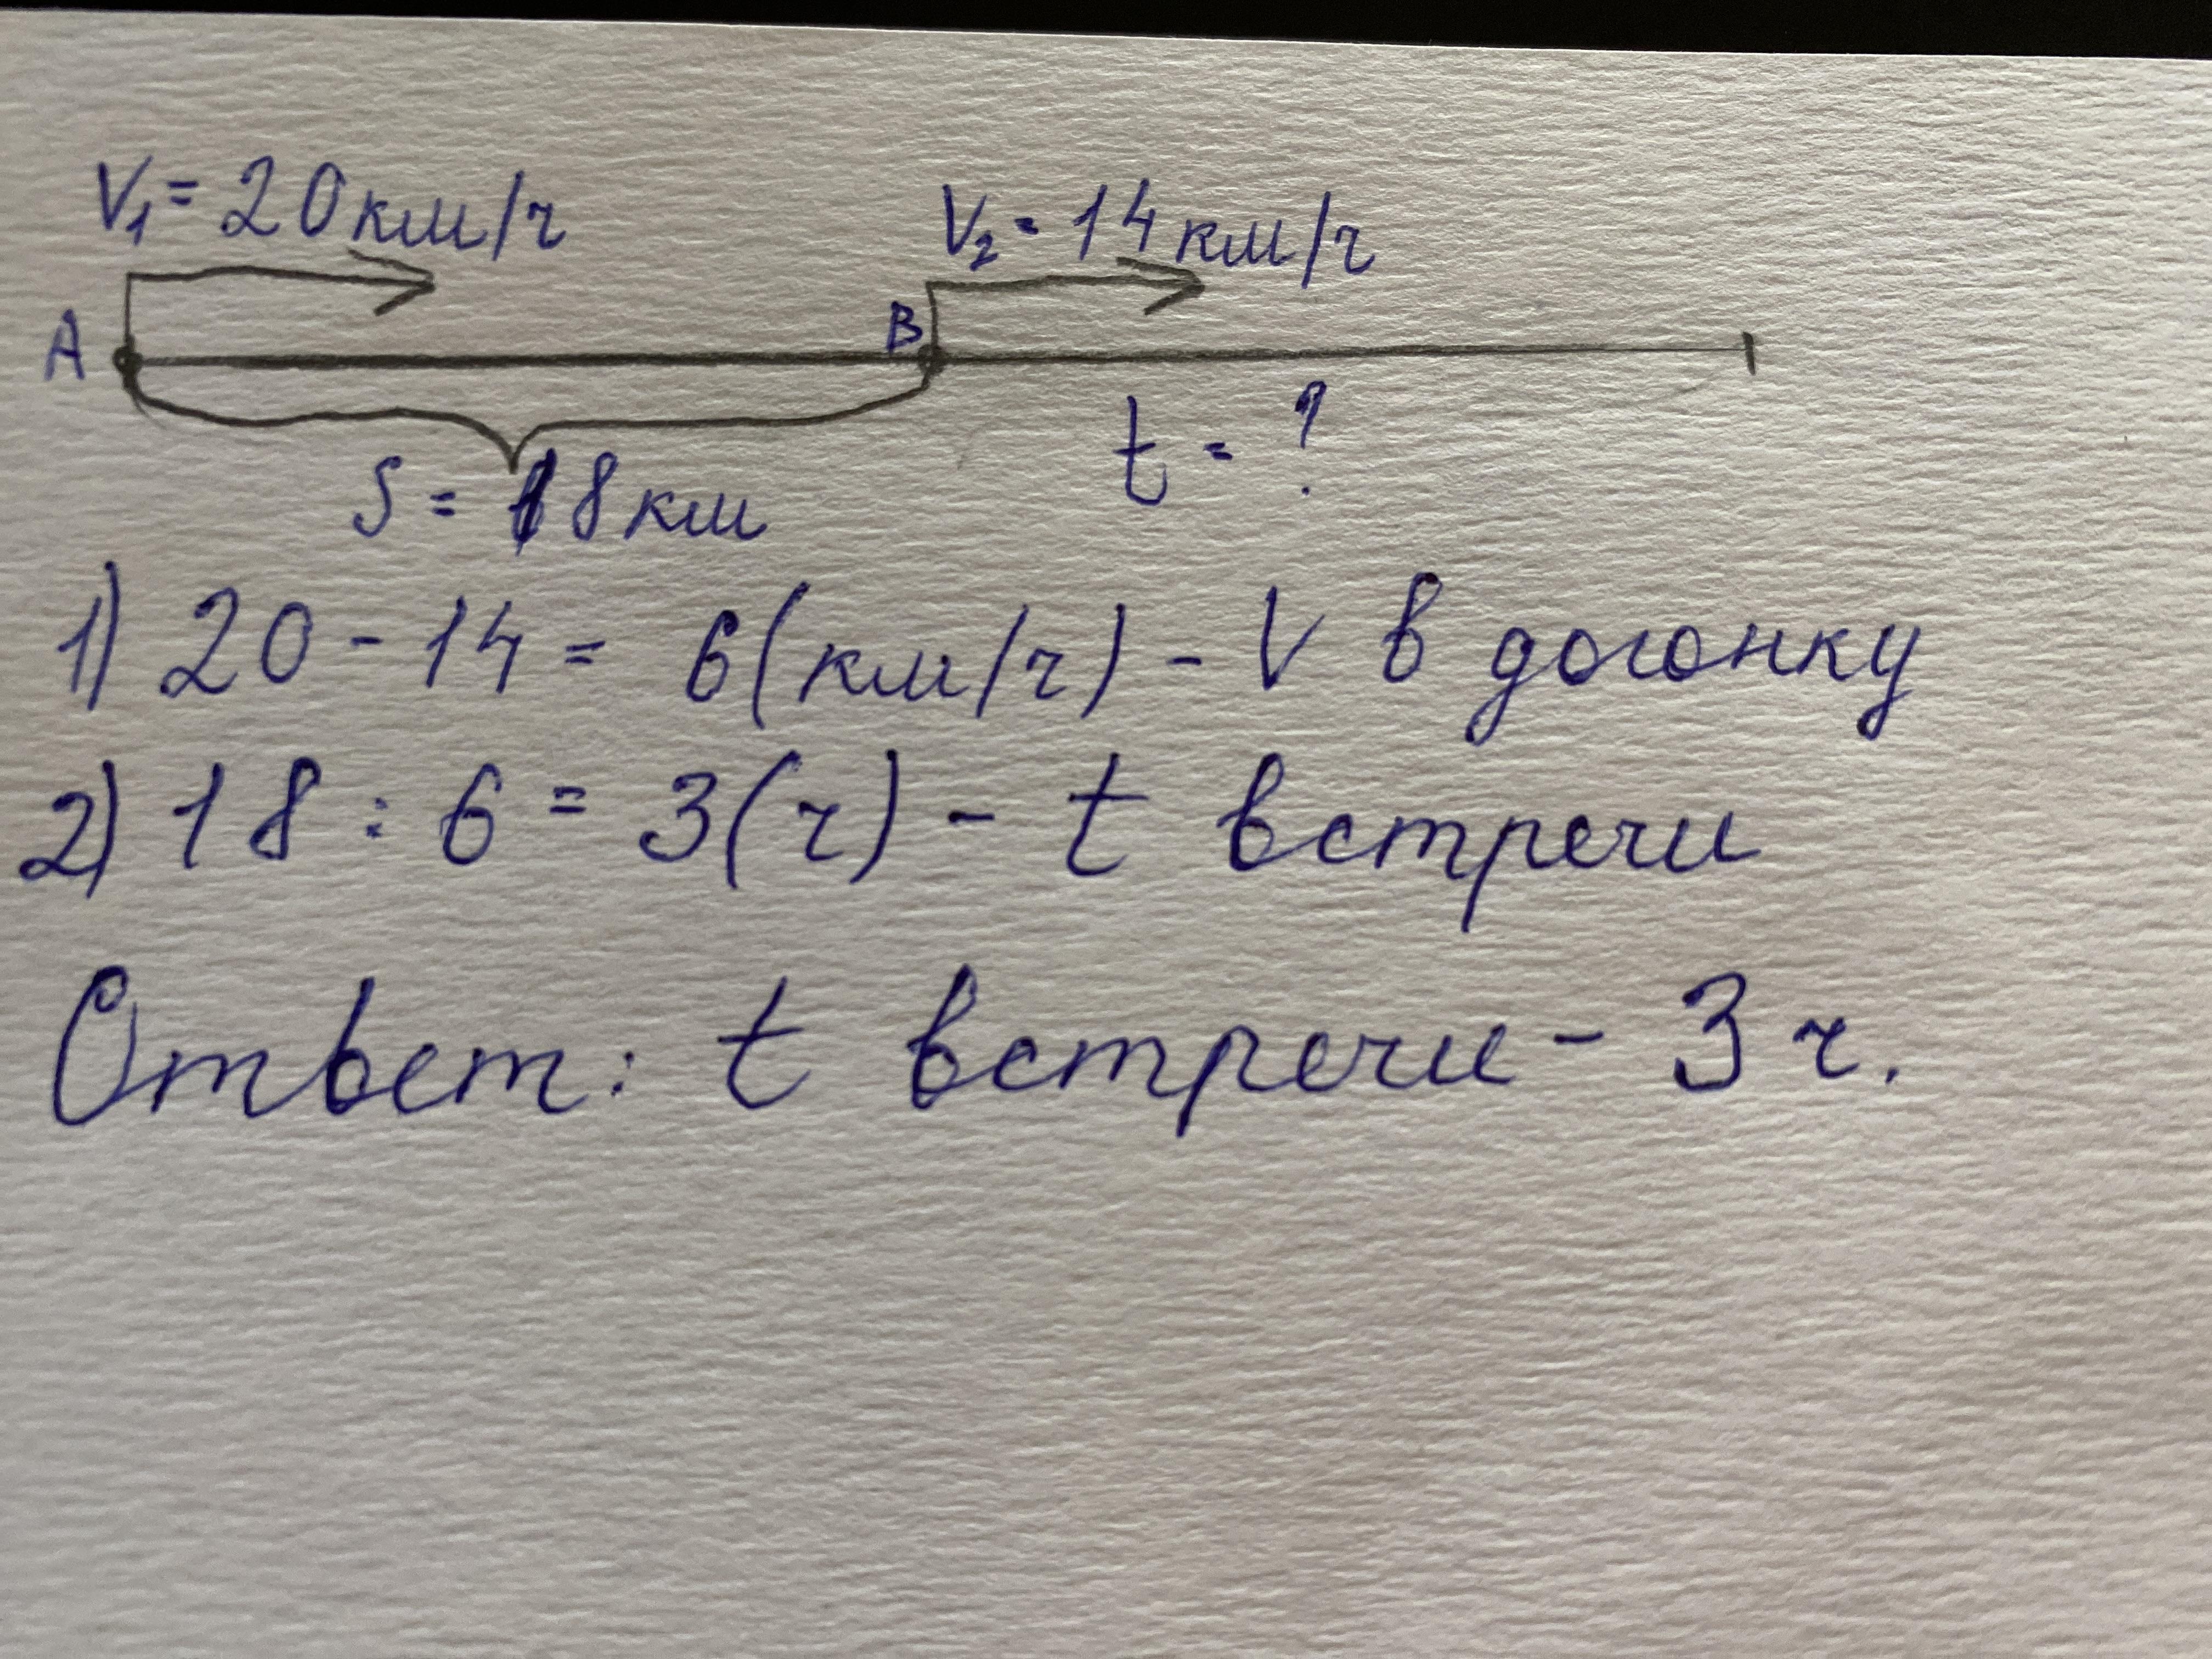 V₁ = 20 км/ч
V₂ = 14 км/ч
A
B
t = ?
S = 18 км
1) 20 - 14 = 6 (км/ч) - V в догонку
2) 18 : 6 = 3 (ч) - t встречи
Ответ: t встречи - 3 ч.